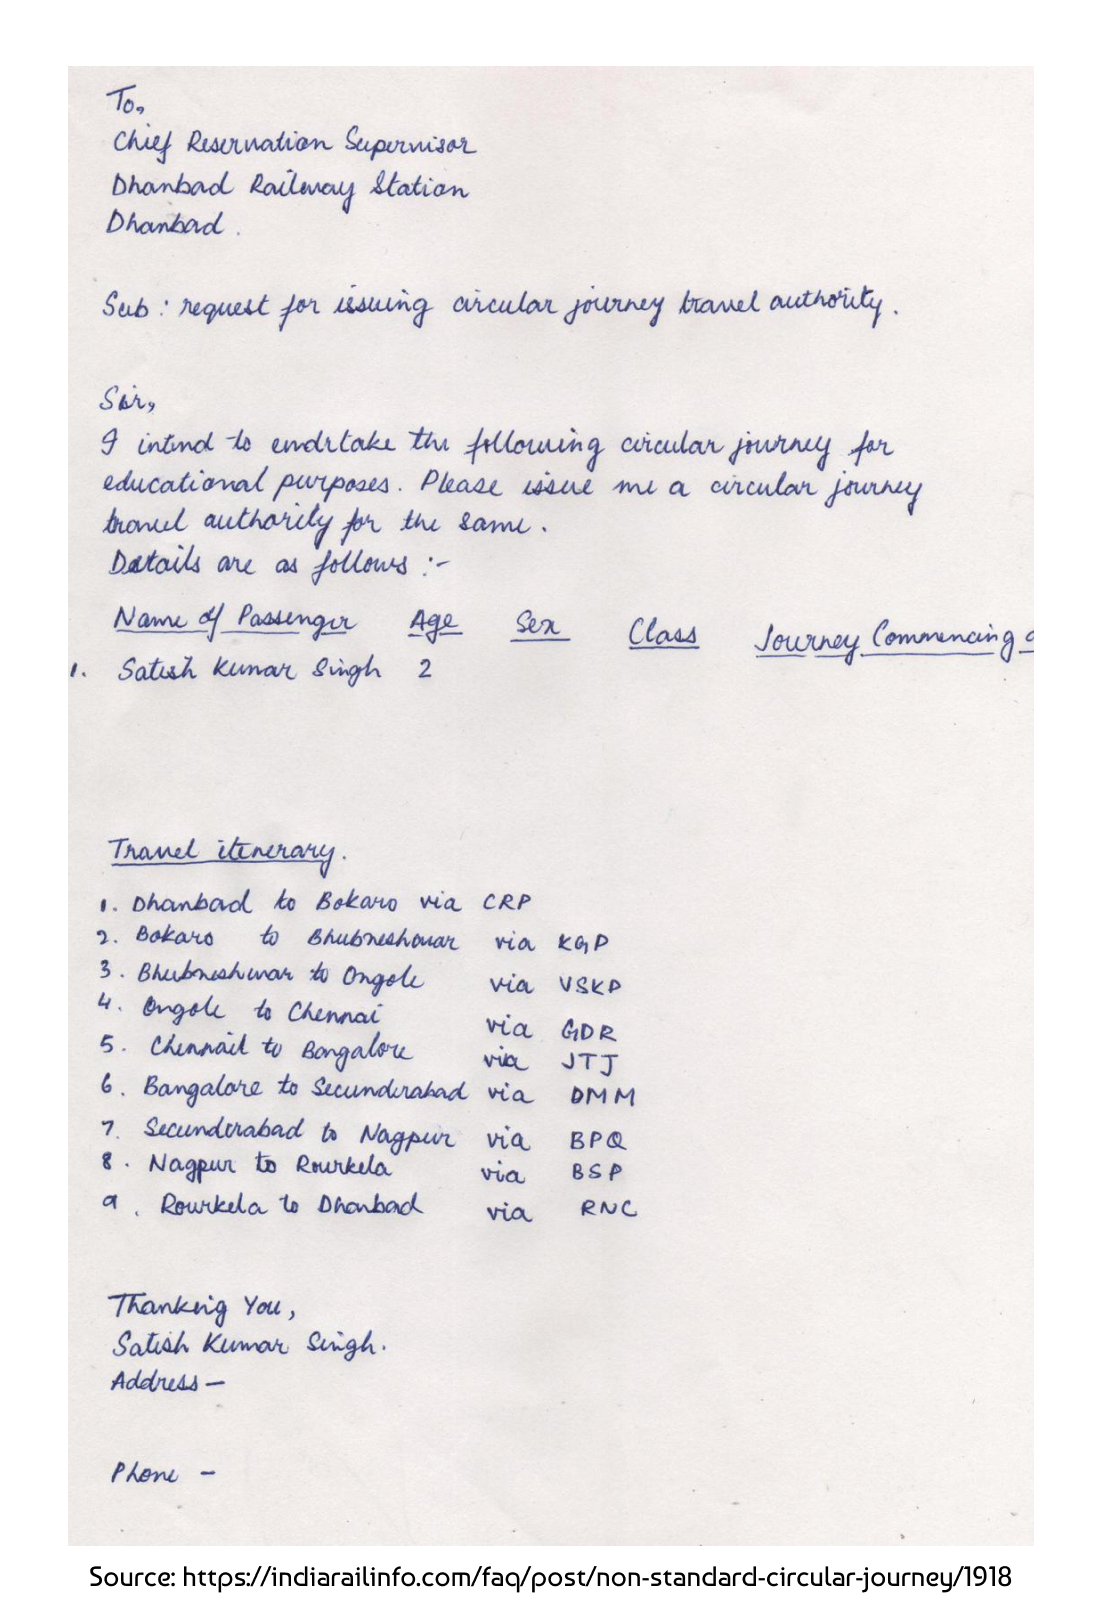 To,
Chief Reservation Supervisor
Dhanbad Railway Station
Dhanbad.
Sub: request for issuing circular journey travel authority.
Sir,
I intend to endrtake the following circular journey for
educational purposes. Please issue me a circular journey
travel authority for the same.
Details are as follows :-
Name of Passenger Age Sex Class Journey Commencing
1. Satish Kumar Singh 2
Travel itenerary.
1. Dhanbad to Bokaro via CRP
2. Bokaro to Bhubneshwar via KGP
3. Bhubneshwar to Ongole via VSKP
4. Ongole to Chennai via GDR
5. Chennail to Bangalore via JTJ
6. Bangalore to Secunderabad via DMM
7. Secunderabad to Nagpur via BPQ
8. Nagpur to Rourkela via BSP
9. Rourkela to Dhanbad via RNC
Thanking You,
Satish Kumar Singh.
Address –
Phone –
Source: https://indiarailinfo.com/faq/post/non-standard-circular-journey/1918